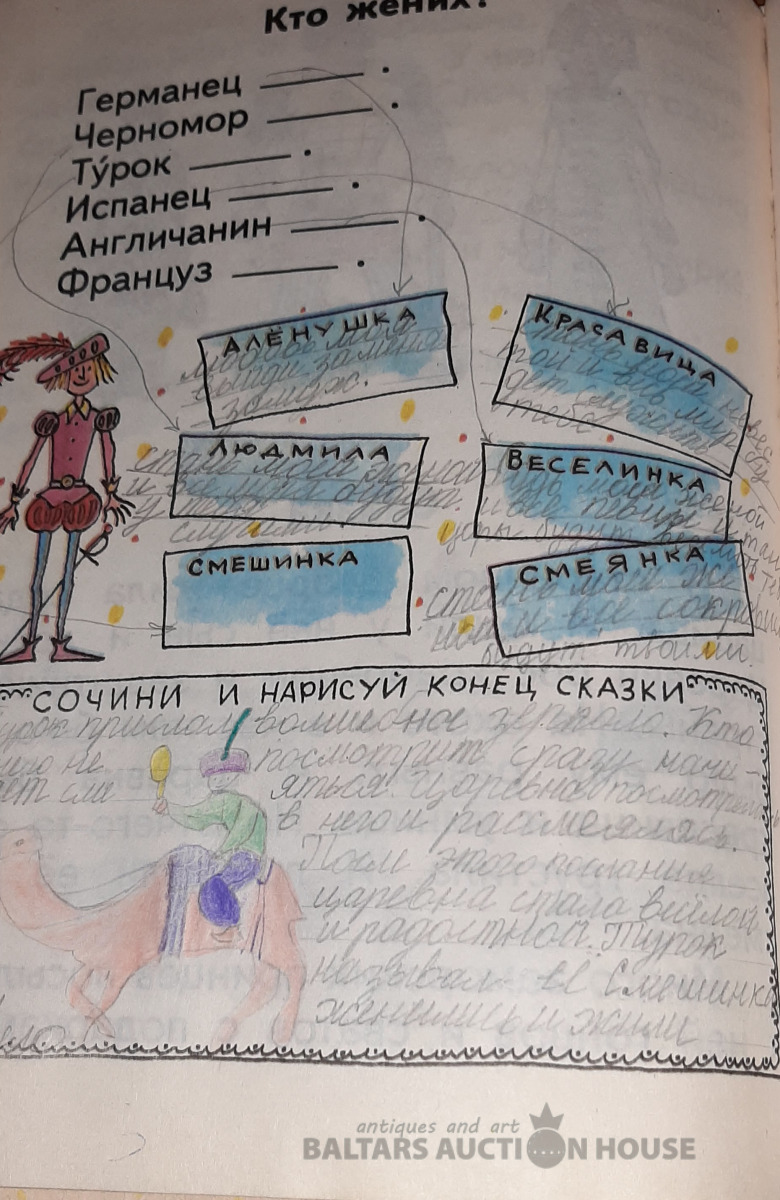 Кто жених?
Германец
Черномор
Ту́рок
Испанец
Англичанин
Француз
АЛЁНУШКА
выйди за меня
замуж.
КРАСАВИЦА
и весь мир
тебе
ЛЮДМИЛА
стань моей женой
и все
слушать.
ВЕСЕЛИНКА
женой
и все певцы и тан
цоры будут веселить те
СМЕШИНКА
СМЕЯНКА
стань моей же
ной и все сокровища
будут твоими.
СОЧИНИ И НАРИСУЙ КОНЕЦ СКАЗКИ
урок прислал волшебное зеркало. Кто
него не посмотрит сразу начи-
ет сме яться. Царевна посмотрела
в него и рассмеялась.
После этого послания
царевна стала весёлой
и радостной. Турок
называл её Смешинка
женились и жили
antiques and art
BALTARS AUCTION HOUSE